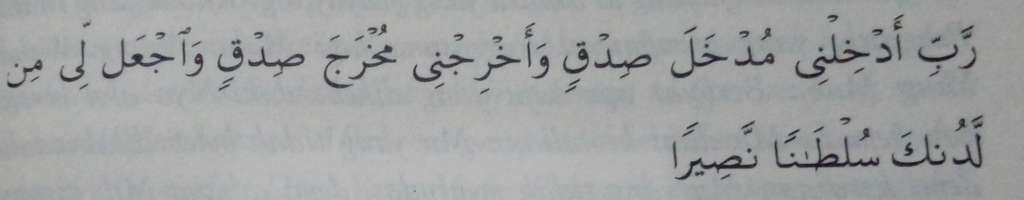 رَّبِّ أَدْخِلْنِى مُدْخَلَ صِدْقٍ وَأَخْرِجْنِى مُخْرَجَ صِدْقٍ وَٱجْعَل لِّى مِن
لَّدُنكَ سُلْطَـٰنًا نَّصِيرًا